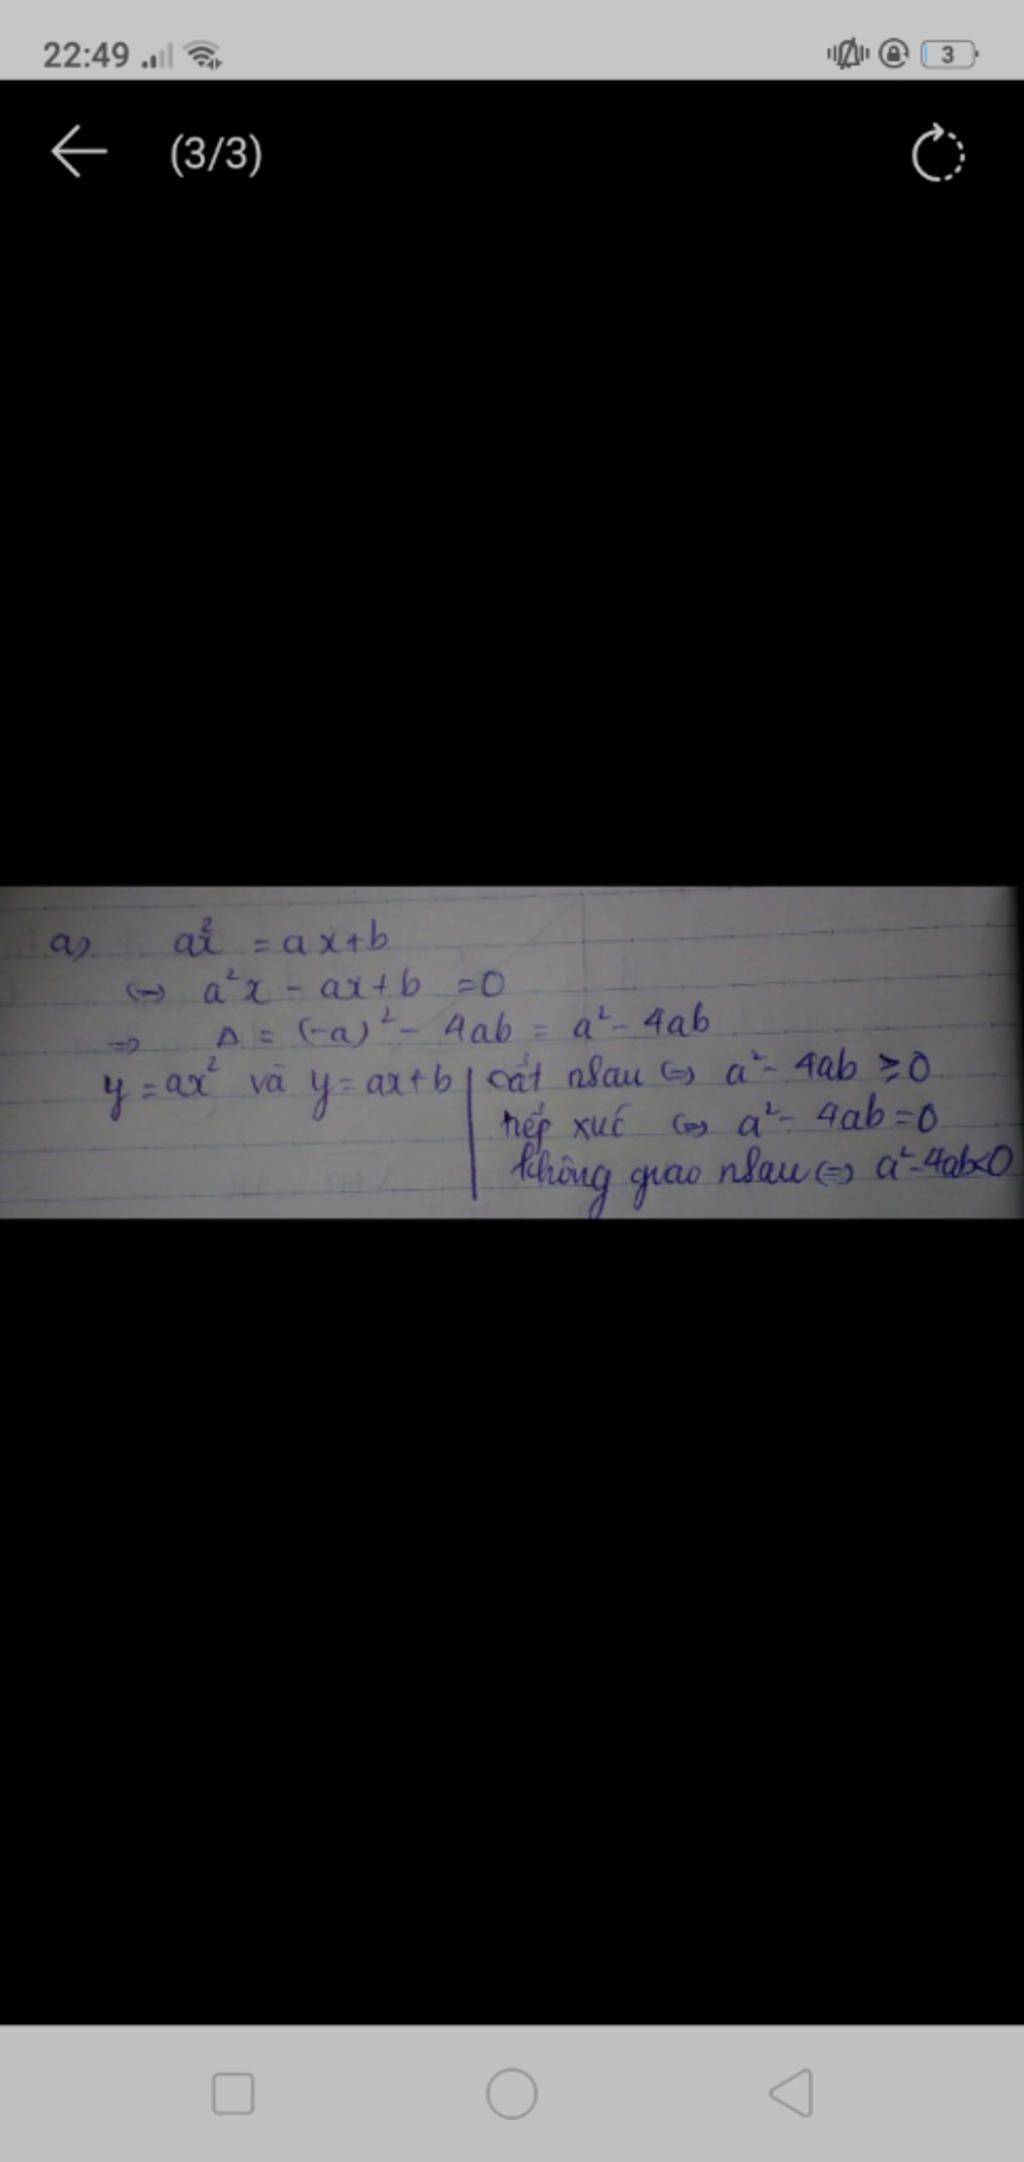 22:49 3
(3/3)
a) ax² = ax+b
⇔ a²x - ax+b = 0
⇒ Δ = (-a)² - 4ab = a² - 4ab
y = ax² và y = ax+b | cắt nhau ⇔ a² - 4ab ≥ 0
tiếp xúc ⇔ a² - 4ab = 0
không giao nhau ⇔ a² - 4ab < 0